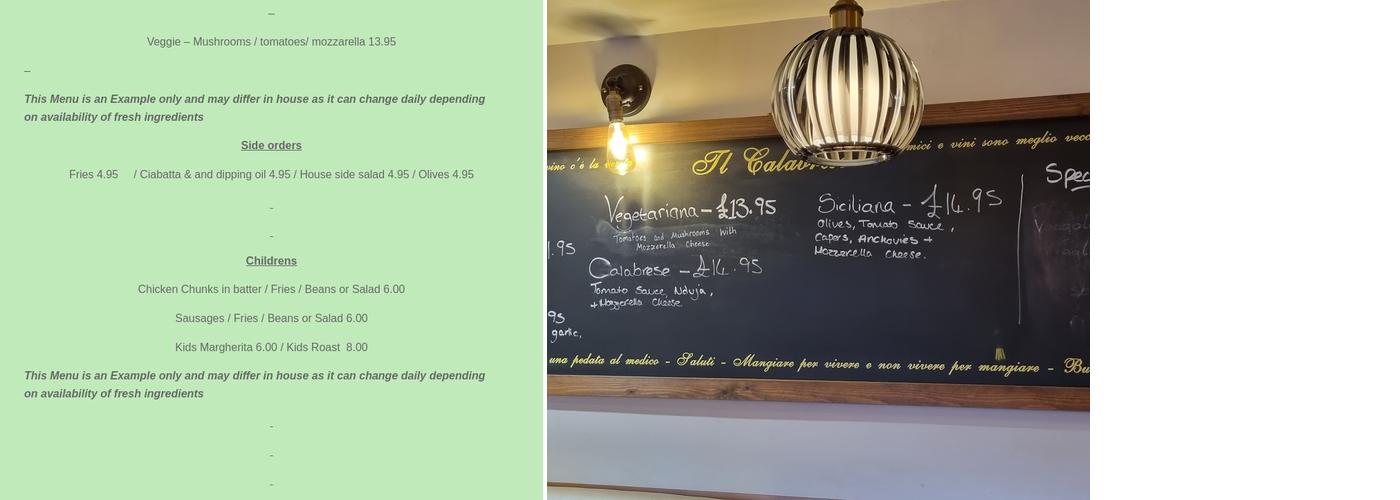 Veggie – Mushrooms / tomatoes/ mozzarella 13.95
–
This Menu is an Example only and may differ in house as it can change daily depending
on availability of fresh ingredients
Side orders
Fries 4.95 / Ciabatta & and dipping oil 4.95 / House side salad 4.95 / Olives 4.95
-
-
Childrens
Chicken Chunks in batter / Fries / Beans or Salad 6.00
Sausages / Fries / Beans or Salad 6.00
Kids Margherita 6.00 / Kids Roast 8.00
This Menu is an Example only and may differ in house as it can change daily depending
on availability of fresh ingredients
-
-
-
vino c'è la
Il Calabr
mici e vini sono meglio vecc
Vegetariana - £13.95
Tomatoes and Mushrooms with
Mozzerella Cheese
Calabrese - £14.95
Tomato Sauce, Nduja,
+ Mozzerella Cheese
Siciliana - £14.95
Olives, Tomato Sauce,
Capers, Anchovies +
Mozzerella Cheese.
Spec
.95
95
garlic,
una pedata al medico - Saluti - Mangiare per vivere e non vivere per mangiare - Bu